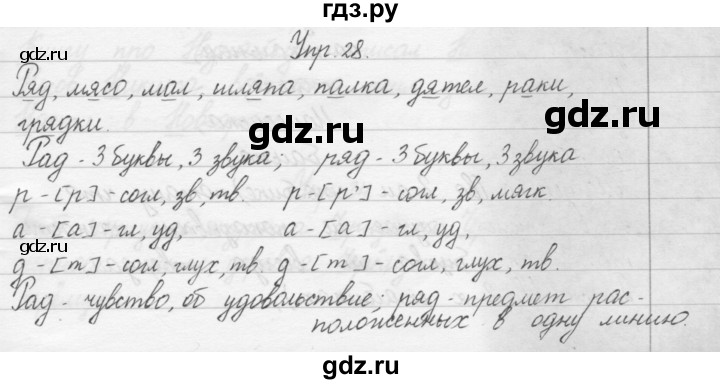 гдз.ру
gdz.ru gdz.ru
Упр. 28.
Ряд, мясо, мал, шляпа, палка, дятел, раки,
грядки.
gdz.ru gdz.ru
Рад - 3 буквы, 3 звука; ряд - 3 буквы, 3 звука
р - [р] - согл, зв, тв. р - [р'] - согл, зв, мягк.
gdz.ru
а - [а] - гл, уд, а - [а] - гл, уд,
gdz.ru
д - [т] - согл, глух, тв. д - [т] - согл, глух, тв.
gdz.ru
Рад - чувство, об удовольствие, ряд - предмет рас-
положенных в одну линию.
gdz.ru
gdz.ru